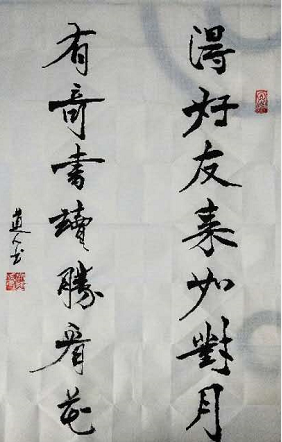 得好友来如對月
有奇書讀勝看花
道人书